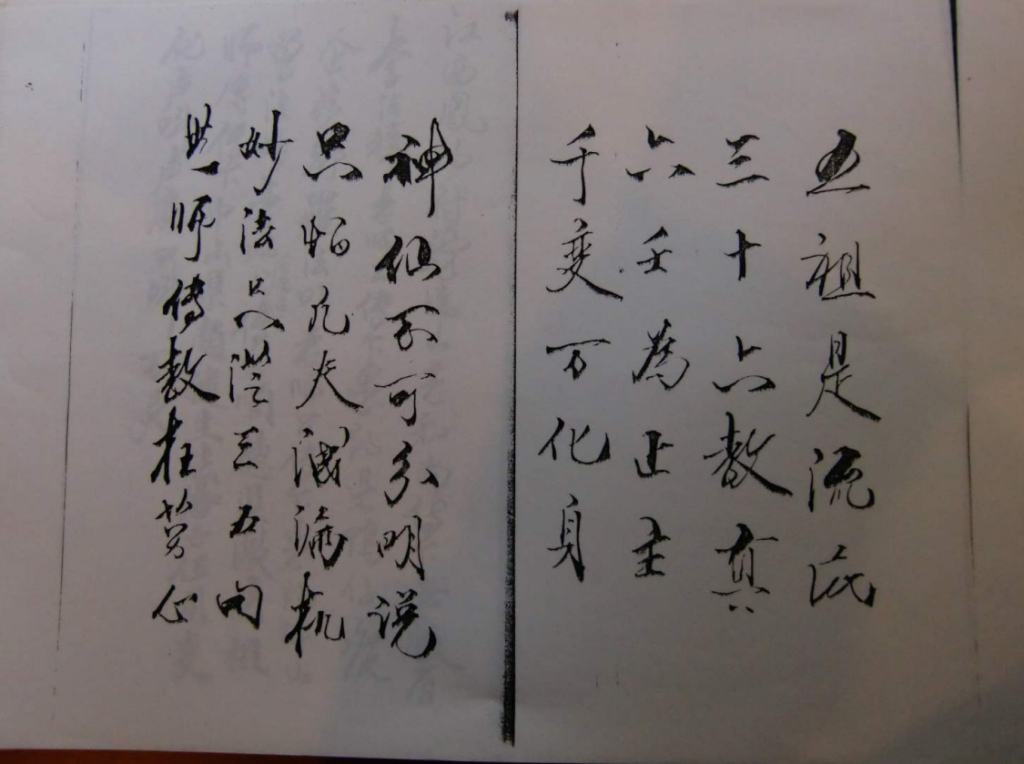 五祖是流民
三十六教真
六壬為正主
千变万化身
神仙不可分明说
只怕凡夫洩漏机
妙法只僅三五句
無师傳教枉劳心